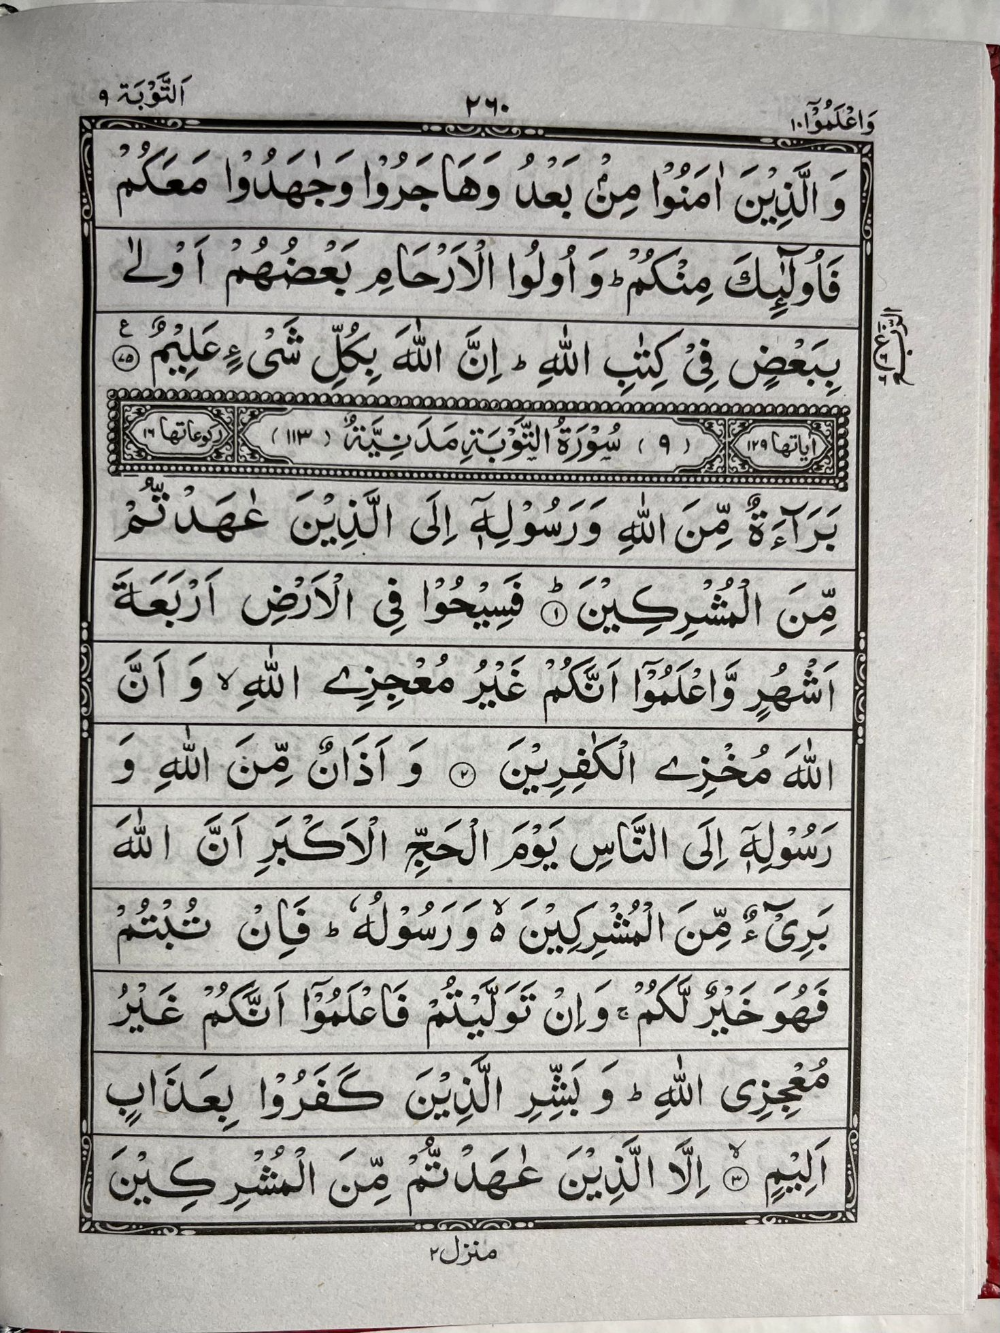 وَاعْلَمُوْٓا ١٠
٢٦٠
اَلتَّوْبَة ٩
وَ الَّذِيْنَ اٰمَنُوْا مِنْۢ بَعْدُ وَهَاجَرُوْا وَجٰهَدُوْا مَعَكُمْ
فَاُولٰٓئِكَ مِنْكُمْ ؕ وَ اُولُوا الْاَرْحَامِ بَعْضُهُمْ اَوْلٰى
بِبَعْضٍ فِيْ كِتٰبِ اللّٰهِ ؕ اِنَّ اللّٰهَ بِكُلِّ شَيْءٍ عَلِيْمٌ ﴿٧٥﴾ ع
اٰياتها ١٢٩ (٩) سُوْرَةُ التَّوْبَةِ مَدَنِيَّةٌ (١١٣) ركوعاتها ١٦
بَرَآءَةٌ مِّنَ اللّٰهِ وَ رَسُوْلِهٖٓ اِلَى الَّذِيْنَ عٰهَدْتُّمْ
مِّنَ الْمُشْرِكِيْنَ ؕ﴿١﴾ فَسِيْحُوْا فِي الْاَرْضِ اَرْبَعَةَ
اَشْهُرٍ وَّاعْلَمُوْٓا اَنَّكُمْ غَيْرُ مُعْجِزِي اللّٰهِ ۙ وَ اَنَّ
اللّٰهَ مُخْزِي الْكٰفِرِيْنَ ﴿٢﴾ وَ اَذَانٌ مِّنَ اللّٰهِ وَ
رَسُوْلِهٖٓ اِلَى النَّاسِ يَوْمَ الْحَجِّ الْاَكْبَرِ اَنَّ اللّٰهَ
بَرِيْٓءٌ مِّنَ الْمُشْرِكِيْنَ ۙ۬ وَ رَسُوْلُهٗ ؕ فَاِنْ تُبْتُمْ
فَهُوَ خَيْرٌ لَّكُمْ ۚ وَاِنْ تَوَلَّيْتُمْ فَاعْلَمُوْٓا اَنَّكُمْ غَيْرُ
مُعْجِزِي اللّٰهِ ؕ وَ بَشِّرِ الَّذِيْنَ كَفَرُوْا بِعَذَابٍ
اَلِيْمٍ ۙ﴿٣﴾ اِلَّا الَّذِيْنَ عٰهَدْتُّمْ مِّنَ الْمُشْرِكِيْنَ
منزل ٢